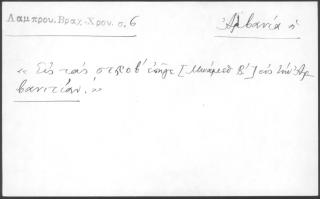 Λαμπρου. Βραχ. Χρον. σ. 6
Ἀλβανία ἡ
« Εἰς τὰς στϡοβ´ ἐπῆγε [Μωάμεθ Β´] εἰς τὴν Ἀρ
βανιτίαν. »